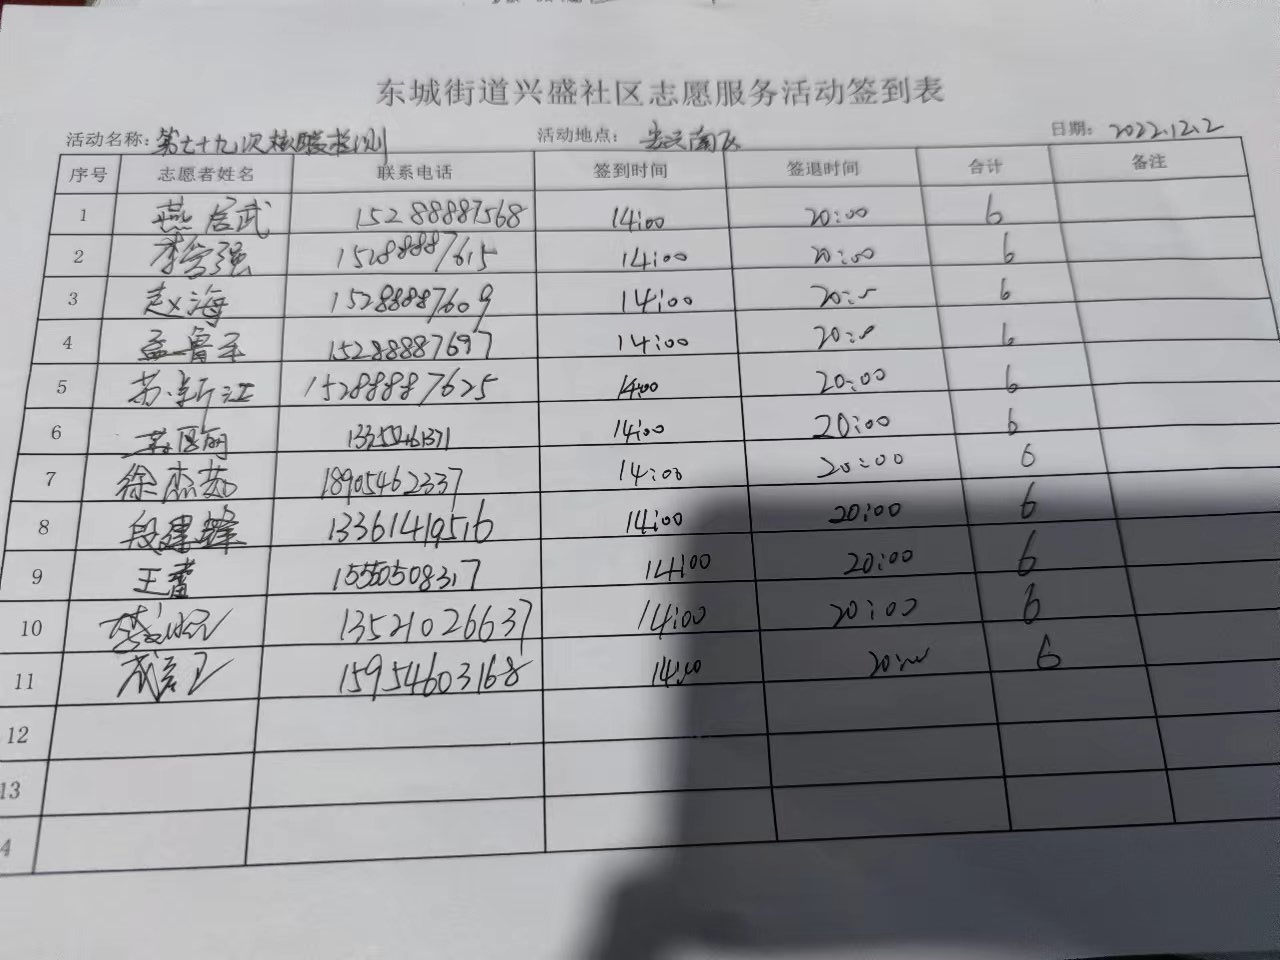 东城街道兴盛社区志愿服务活动签到表
活动名称：第七十九次核酸检测 活动地点： 日期：2022.12.2
序号 志愿者姓名 联系电话 签到时间 签退时间 合计 备注
1 燕居武 15288887568 14:00 20:00 6
2 李富强 15288887615 14:00 20:00 6
3 赵海 15288887609 14:00 20:00 6
4 孟鲁 15288887697 14:00 20:00 6
5 苏新江 15288887625 14:00 20:00 6
6 14:00 20:00 6
7 徐杰茹 18905462337 14:00 20:00 6
8 段建峰 13361419516 14:00 20:00 6
9 王蕾 15550508317 14:00 20:00 6
10 13521026637 14:00 20:00 6
11 15954603168 14:00 20:00 6
12
13
4